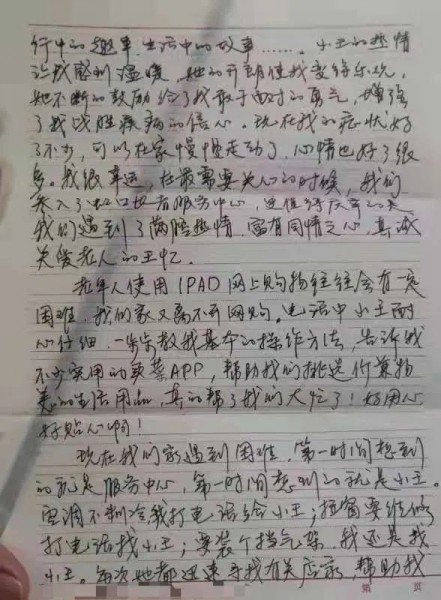 行中的趣事、生活中的故事……。小王的热情
让我感到温暖,她的开朗使我变得乐观,
她不断的鼓励给了我敢于面对的勇气,增强
了我战胜疾病的信心。现在我的症状好
了不少,可以在家慢慢走动了,心情也好了很
多。我很幸运,在最需要关心的时候,我们
加入了虹口投者服务中心,更值得庆幸的是
我们遇到了满腔热情、富有同情之心、真诚
关爱老人的王忆。
老年人使用IPAD网上购物往往会有一定
困难,我们家又离不开网购。电话中小王耐
心仔细、一步步教我基本的操作方法,告诉我
不少实用的买菜APP,帮助我们挑选价廉物
美的生活用品,真的帮了我们大忙了!好用心
好贴心啊!
现在我们家遇到困难,第一时间想到
的就是服务中心,第一时间想到的就是小王。
空调不制冷我打电话给小王;拉窗要维修
打电话找小王;要装个挡气架,我还是找
小王。每次她都迅速寻找有关店家,帮助我
第 页